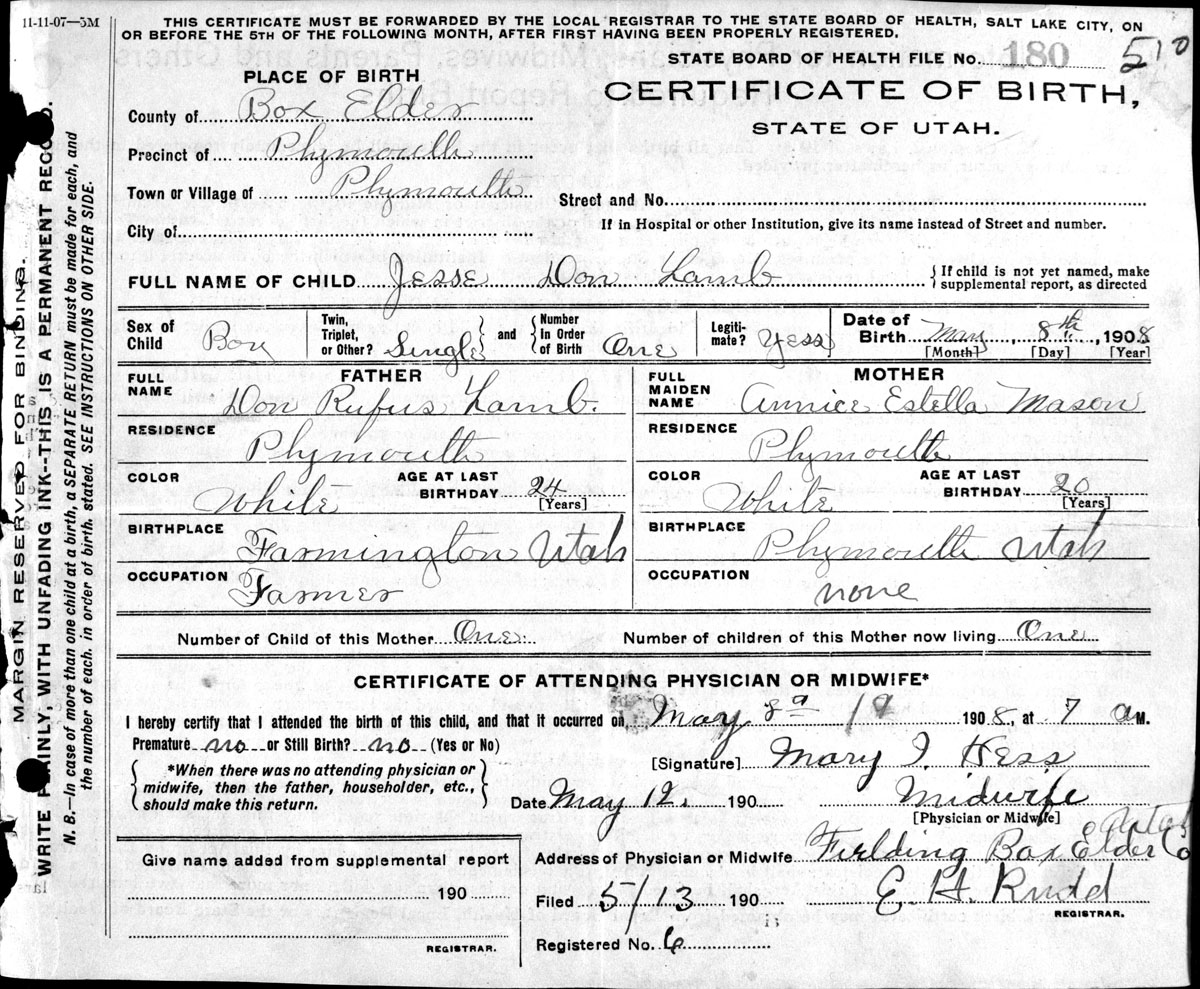 11-11-07—5M
THIS CERTIFICATE MUST BE FORWARDED BY THE LOCAL REGISTRAR TO THE STATE BOARD OF HEALTH, SALT LAKE CITY, ON
OR BEFORE THE 5TH OF THE FOLLOWING MONTH, AFTER FIRST HAVING BEEN PROPERLY REGISTERED.
STATE BOARD OF HEALTH FILE No. 180 510
PLACE OF BIRTH
CERTIFICATE OF BIRTH,
STATE OF UTAH.
County of Box Elder
Precinct of Plymouth
Town or Village of Plymouth
Street and No.
City of
If in Hospital or other Institution, give its name instead of Street and number.
FULL NAME OF CHILD Jesse Don Lamb
{If child is not yet named, make
supplemental report, as directed
Sex of Child Boy
Twin, Triplet, or Other? Single
and Number In Order of Birth One
Legiti-mate? Yess
Date of Birth May 8th, 1908
[Month] [Day] [Year]
FATHER
FULL NAME Don Rufus Lamb.
RESIDENCE Plymouth
COLOR White
AGE AT LAST BIRTHDAY 24
[Years]
BIRTHPLACE Farmington Utah
OCCUPATION Farmer
MOTHER
FULL MAIDEN NAME Annice Estella Mason
RESIDENCE Plymouth
COLOR White
AGE AT LAST BIRTHDAY 20
[Years]
BIRTHPLACE Plymouth Utah
OCCUPATION none
Number of Child of this Mother One
Number of children of this Mother now living One
CERTIFICATE OF ATTENDING PHYSICIAN OR MIDWIFE*
I hereby certify that I attended the birth of this child, and that it occurred on May 8 1908, at 7 a M.
Premature no or Still Birth? no (Yes or No)
{*When there was no attending physician or
midwife, then the father, householder, etc.,
should make this return.}
[Signature] Mary I. Hess
Date May 12. 190
Midwife
[Physician or Midwife]
Address of Physician or Midwife Fielding Box Elder Co Utah
Give name added from supplemental report
190
REGISTRAR.
Filed 5/13 190
E. H. Rudd
REGISTRAR.
Registered No. 6
MARGIN RESERVED FOR BINDING.
WRITE PLAINLY, WITH UNFADING INK--THIS IS A PERMANENT RECORD.
N. B.—In case of more than one child at a birth, a SEPARATE RETURN must be made for each, and
the number of each. in order of birth. stated. SEE INSTRUCTIONS ON OTHER SIDE.